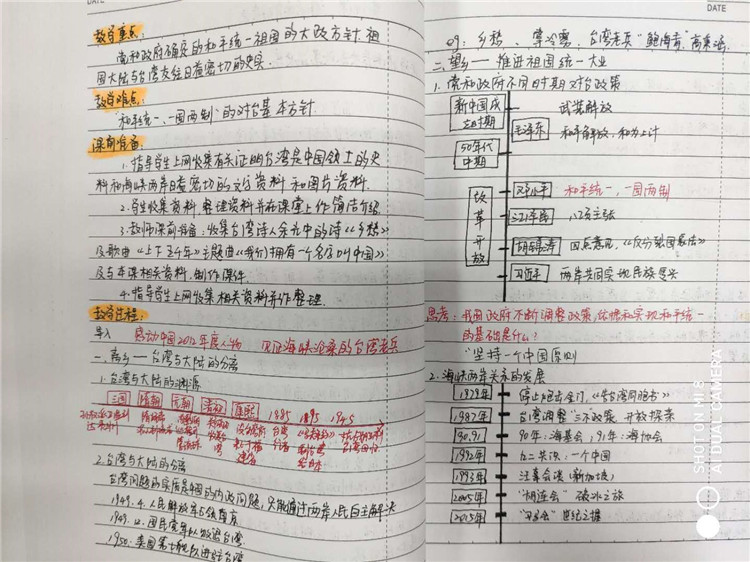 DATE
教学重点:
党和政府确定的和平统一祖国的大政方针 祖
国大陆与台湾友往日益密切的史实
教学难点:
"和平统一、一国两制"的对台基本方针
课前准备:
1.指导学生上网收集有关证明台湾是中国领土的史
料和海峡两岸日益密切的文字资料和图片资料.
2.学生收集资料,整理资料并在课堂上作简洁介绍
3.教师课前准备:收集台湾诗人余光中的诗《乡愁》
及歌曲《上下五千年》主题曲《我们拥有一个名字叫中国》
及与本课相关资料,制作课件.
4.指导学生上网收集相关资料并作整理.
教学过程:
导入 感动中国2012年度人物 见证海峡沧桑的台湾老兵
一.离乡——台湾与大陆的分离
1.台湾与大陆的渊源
三国 隋朝 元朝 清初 1885 1895 1945
2.台湾与大陆的分离
台湾问题的实质是中国的内政问题,只能通过两岸人民自主解决
1949.4.人民解放军占领南京
1949.12.国民党军队败退台湾
1950.美国第七舰队进驻台湾
DATE
09:乡愁、掌冷雾、台湾老兵"鲍海青 高秉涵
二.望乡——推进祖国统一大业
1.党和政府不同时期对台政策
新中国成立时期 武装解放
毛泽东 和平解放,和为上计
50年代中期
改革开放
邓小平 和平统一,一国两制
江泽民 八项主张
胡锦涛 四点意见,《反分裂国家法》
习近平 两岸共同实现民族复兴
思考:我国政府不断调整政策,给憾和实现和平统一
的基础是什么?
"坚持一个中国原则
2.海峡两岸关系的发展
1979年 停止炮击金门,《告台湾同胞书》
1987年 台湾调整"三不"政策,开放探亲
90.91 90年:海基会;91年:海协会
1992年 九二共识:一个中国
1993年 汪辜会谈(新加坡)
2005年 "胡连会"破冰之旅
2015年 "习马会"世纪之握
SHOT ON MI 8
AI DUAL CAMERA